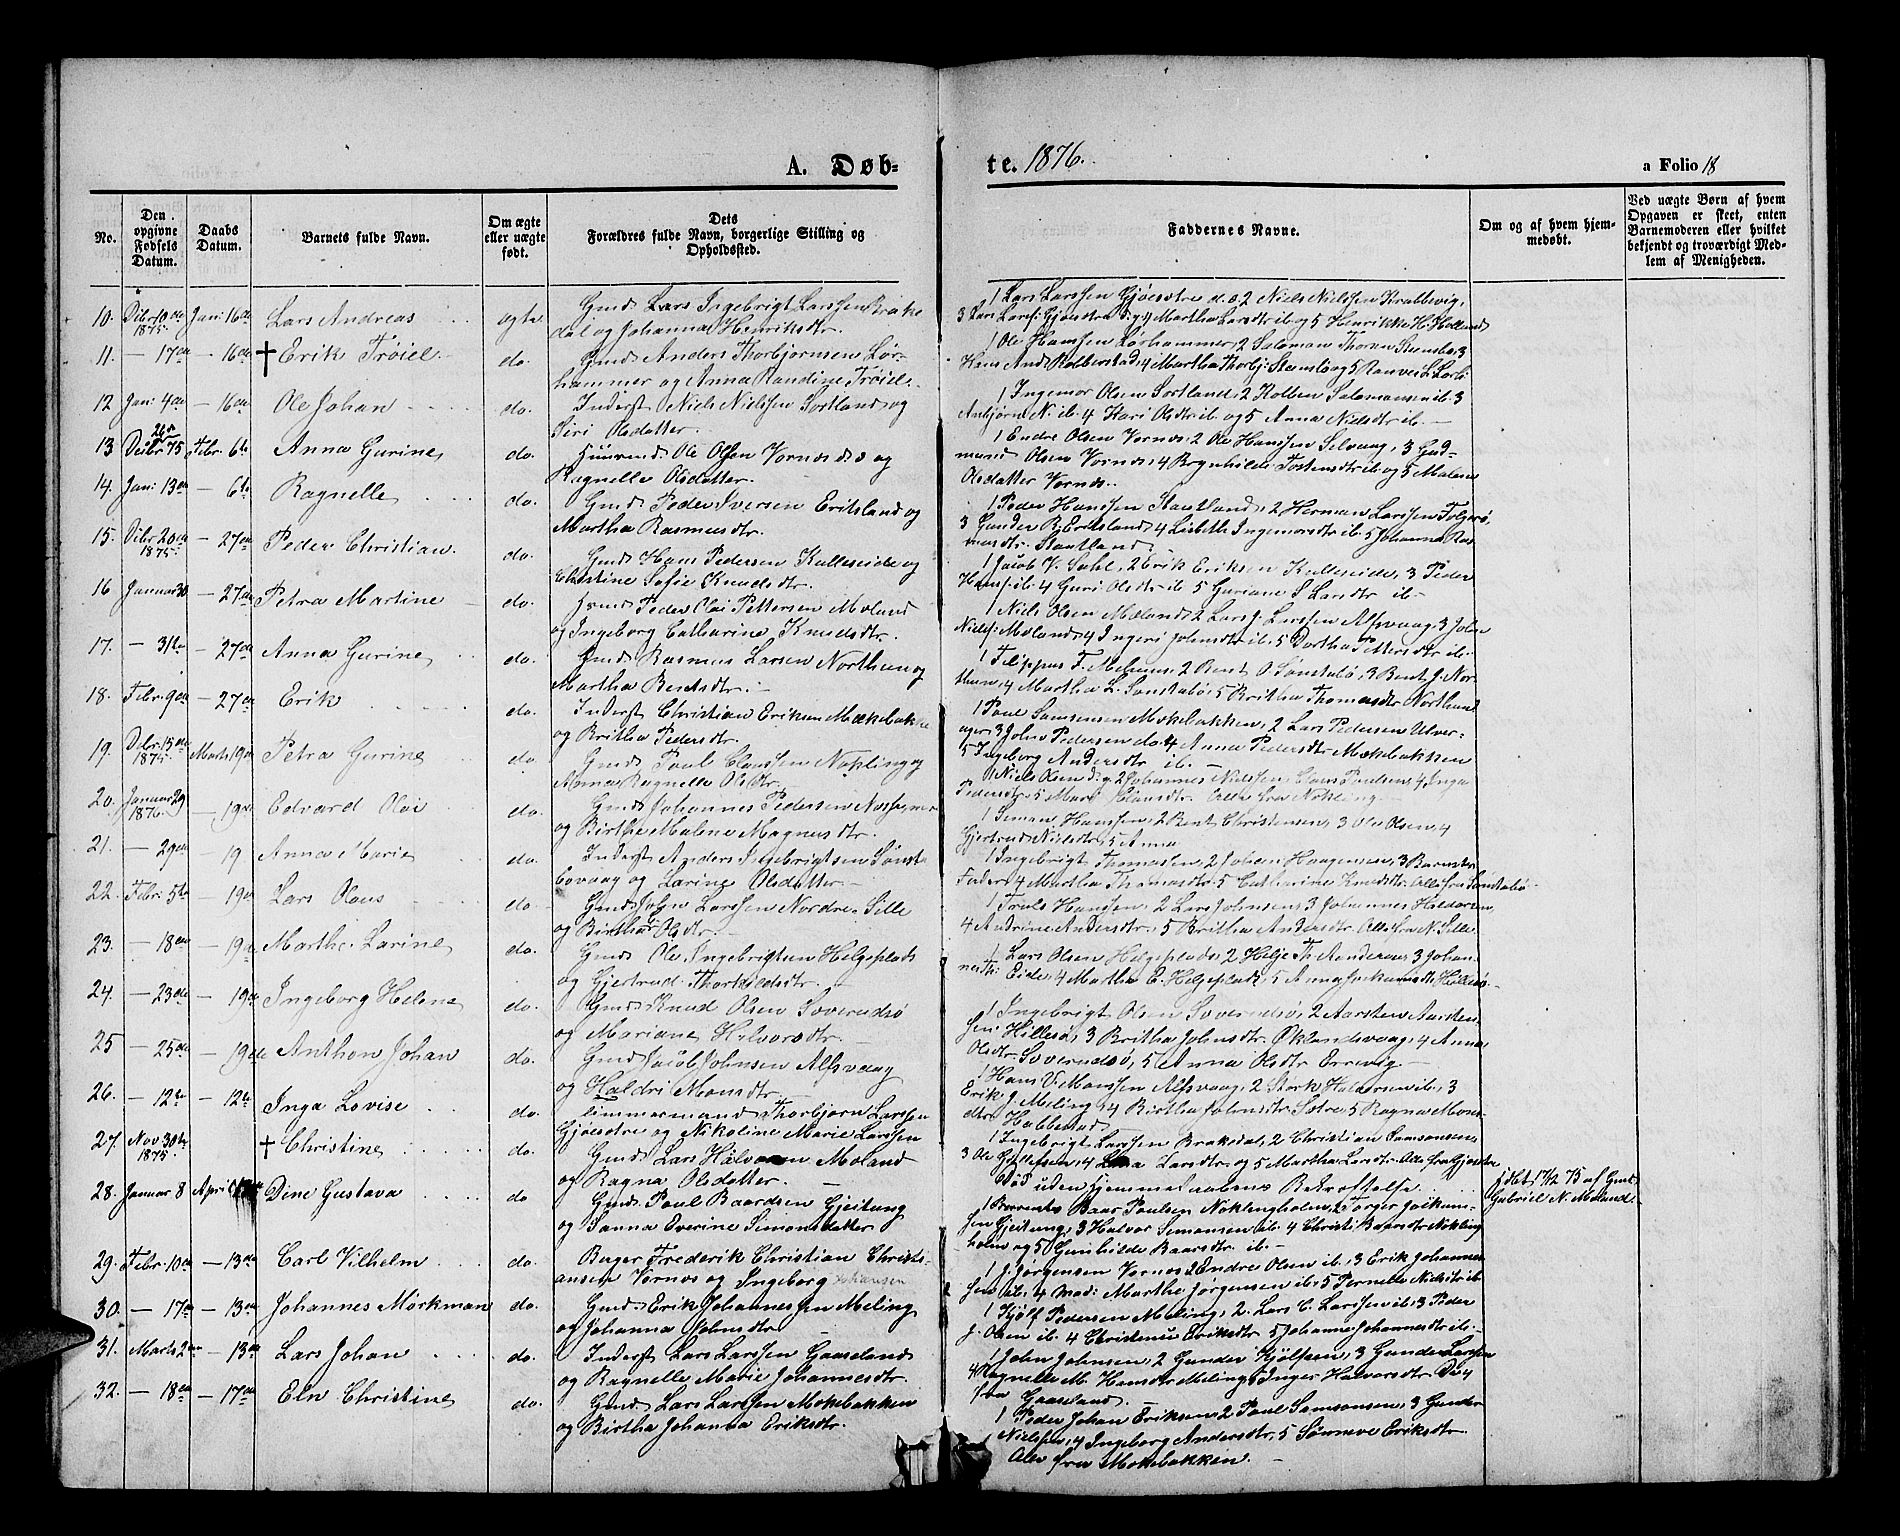 A. Døb-
te. 1876.
a Folio 18
No.
Den opgivne Fødsels Datum.
Daabs Datum.
Barnets fulde Navn.
Om ægte eller uægte født.
Dets Forældres fulde Navn, borgerlige Stilling og Opholdssted.
Faddernes Navne.
Om og af hvem hjemmedøbt.
Ved uægte Børn af hvem Opgaven er skeet, enten Barnemoderen eller hvilket bekjendt og troværdigt Medlem af Menigheden.
10. Dcbr. 10de 1875. Jan: 16de Lars Andreas ægte Gmd. Lars Ingebrigt Larssen Brakedal og Johanna Henriksdtr.
1 Lars Larssen Gjøesdtre 2 Niels Nielssen Krabbevig,
11. — 17de — 16de † Erik Trøiel do. Gmd. Anders Thorbjørnsen Lørhammer og Anna Randine Trøiel.
1 Ole Hanssen Lørhammer, 2 Salomon
12 Jan: 4de — 16de Ole Johan do. Inderst Niels Nielssen Sortland og Siri Olsdatter.
1 Ingemor Olsen Sortland, 2 Kolben Salomonsen ib. 3 Anbjørn N. ib. 4 Kari Olsdtr ib. og 5 Anna Nielsdtr ib.
13 26de Decbr 75 Febr. 6te Anna Gurine do. Huusmd. Ole Olsen Vornes og Ragnelle Olsdatter.
1 Endre Olsen Vornes, 2 Ole Hanssen Selvaag, 3 Gudmund Olsen Vornes, 4 Brynhilde Tostensdtr ib. og 5 Malene Olsdatter Vornes.
14. Jan: 13de — 6te Ragnelle do. Gmd. Peder Iversen Eritsland og Martha Rasmusdtr.
1 Peder Hanssen Staatland, 2 Herman Larssen Folgerø, 3 Gunder R. Eritsland, 4 Lisbeth Ingemorsdtr ib. 5 Johanna Rasmusdtr. Staatland
15. Dcbr 20de 1875. — 27de Peder Christian. do. Gmd. Hans Pedersen Kulleseide og Christine Sofie Knudsdtr.
1 Jacob V. Dahl, 2 Erik Eriksen Kulleseide, 3 Peder Hansf. ib. 4 Guri Olsdtr ib. 5 Guriane L. Larsdtr ib.
16 Januar 30 — 27de Petra Martine do. Gmd. Peder Olai Pettersen Moland og Ingeborg Catharine Knudsdtr.
1 Niels Olsen Mæland, 2 Lars J. Larssen Alfsvaag, 3 John Nielsf. Moland, 4 Ingeri Johnsdtr ib. 5 Dortha Pettersdtr ib.
17. — 31te — 27de Anna Gurine do. Gmd. Rasmus Larsen Northun og Martha Bentsdtr.
1 Filippus F. Mehuus, 2 Bent O. Sønstabø, 3 Bent J. Northun, 4 Martha L. Sønstabø, 5 Britha Thomasdtr Northun
18. Febr. 9de — 27de Erik do. Inderst Christian Eriksen Møkebakken og Britha Pedersdtr.
1 Paul Samsonsen Møkebakken, 2 Lars Pedersen Ulversøger, 3 John Pedersen do. 4 Anna Pedersdtr Møkebakken 5 Ingeborg Andersdtr ib.
19. Dcbr. 15de 1875. Marts 19de Petra Gurine do. Gmd. Paul Claussen Nøkling og Anna Ragnelle Olsdtr.
1 Niels Olsen 2 Johannes Nielssen, Claus Paulsen, 4 Inga Pedersdtr, 5 Mari Clausdtr. Alle fra Nøkling.
20. Januar 29 1876. — 19de Edvard Olai do. Gmd. Johannes Pedersen og Birtha Malene Magnusdtr.
1 Simon Hanssen, 2 Bent Christensen, 3 Ole Olsen, 4 Gjertrud Nielsdtr, 5 Anna
21. — 29de — 19 Anna Marie do. Inderst Anders Ingebrigtsen Sønstabøvaag og Larine Olsdatter.
1 Ingebrigt Thomassen, 2 Johan Haagensen, 3 Barnets Fader, 4 Martha Thomasdtr, 5 Catharine Knudsdtr. Alle fra Sønstabø.
22. Febr. 5te — 19de Lars Olaus do. Gmd. John Larssen Nordre Sille og Birtha Olsdtr.
1 Truls Hanssen, 2 Lars Johnsen, 3 Johannes Haldorsen, 4 Andrine Andersdtr, 5 Britha Andersdtr. Alle fra N. Sille.
23. — 18de — 19de Marthe Larine do. Gmd. Ole Ingebrigtsen Helgeplads og Gjertrud Thorkildsdtr.
1 Lars Olsen Helgeplads, 2 Helje Th. Anderaas, 3 Johannesdtr Eide, 4 Martha E. Helgeplads, 5 Anna Jockumsdtr Hillesø.
24. — 23de — 19de Ingeborg Helene do. Gmd. Knud Olsen Goverudsø og Mariane Halvorsdtr.
1 Ingebrigt Olsen Goverudsø, 2 Aarsten Aarstensen Hillesø, 3 Britha Johnsdtr. Øklandsvaag, 4 Anna Olsdtr. Goverudsø, 5 Anna Olsdtr. Erevig.
25 — 25de — 19de Anthon Johan do. Gmd. Jacob Johnsen Alfsvaag og Haldri Monsdtr.
1 Hans V. Monssen Alfsvaag, 2 Stork Haldorsen ib. 3 Erik J. Meling, 4 Birtha Johnsdtr. Sætre, 5 Ragna Monsdtr. Habbestad.
26. — 12te — 12te Inga Lovise do. Timmermand Thorbjørn Larssen Gjøesdtre og Nikoline Marie Larssen
1 Ingebrigt Larssen Brakedal, 2 Christian Samsonsen, 3 Ole Gullefsen, 4 Larsdtr. og 5 Martha Larsdtr. Alle fra Gjøesdtre
27. Nov 30te 1875. † Christine do. Gmd. Lars Halvorsen Moland og Ragna Olsdatter.
Død uden Hjemmedaabens Bekræftelse.
hjdbt 17/12 75 af Gmd. Gabriel N. Moland
28. Januar 8 April Dine Gustava do Gmd. Paul Baardsen Gjeitung og Sanna Everine Simonsdatter
1 Barents Baar Paulsen Nøklingholm, 2 Torger Jockumsen Gjeitung, 3 Halvor Simonsen ib. 4 Christi Baarsdtr Nøklingholm og 5 Gunhilde Baarsdtr. ib.
29. Febr. 10de — 13de Carl Vilhelm do. Bager Frederik Christian Christiansen Vornes og Ingeborg Johansen
1 J. Jørgensen Vornes 2 Endre Olsen ib. 3 Erik Johannessen ib. 4 Mad: Marthe Jørgensen ib. 5 Pernelle Nielsdtr ib.
30. — 17de — 13de Johannes Mørkman do. Gmd. Erik Johannessen Meling og Johanna Johnsdtr.
1 Kjøll Pedersen Meling, 2. Lars C. Larssen ib. 3 Peder J. Olsen ib. 4 Christense Eriksdtr. 5 Johanne Johannesdtr ib.
31. Marts 2den — 13de Lars Johan do. Inderst Lars Larssen Gaaseland og Ragnelle Marie Johannesdtr.
1 John Johnsen, 2 Gunder Kjølsen, 3 Gunder Larssen 4 Ragnelle M. Hansdtr Meling, 5 Inger Halvorsdtr. De 4 fra Gaaseland.
32. — 18de — 17de Eln Christine do. Gmd. Lars Larssen Møkebakken og Birtha Johanna Eriksdtr.
1 Peder Johan Eriksen, 2 Paul Samsonsen, 3 Gunder Nielssen, 4 Ingeborg Andersdtr, 5 Sørneve Eriksdtr. Alle fra Møkebakken.